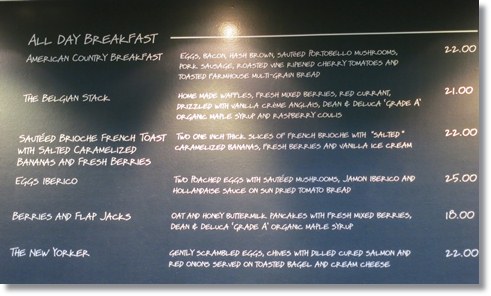 ALL DAY BREAKFAST
AMERICAN COUNTRY BREAKFAST EGGS, BACON, HASH BROWN, SAUTÉED PORTOBELLO MUSHROOMS, 22.00
PORK SAUSAGE, ROASTED VINE RIPENED CHERRY TOMATOES AND
TOASTED FARMHOUSE MULTI-GRAIN BREAD
THE BELGIAN STACK HOME MADE WAFFLES, FRESH MIXED BERRIES, RED CURRANT, 21.00
DRIZZLED WITH VANILLA CRÈME ANGLAIS, DEAN & DELUCA 'GRADE A'
ORGANIC MAPLE SYRUP AND RASPBERRY COULIS
SAUTÉED BRIOCHE FRENCH TOAST TWO ONE INCH THICK SLICES OF FRENCH BRIOCHE WITH "SALTED" 22.00
WITH SALTED CARAMELIZED CARAMELIZED BANANAS, FRESH BERRIES AND VANILLA ICE CREAM
BANANAS AND FRESH BERRIES
EGGS IBERICO TWO POACHED EGGS WITH SAUTÉED MUSHROOMS, JAMON IBERICO AND 25.00
HOLLANDAISE SAUCE ON SUN DRIED TOMATO BREAD
BERRIES AND FLAP JACKS OAT AND HONEY BUTTERMILK PANCAKES WITH FRESH MIXED BERRIES, 18.00
DEAN & DELUCA 'GRADE A' ORGANIC MAPLE SYRUP
THE NEW YORKER GENTLY SCRAMBLED EGGS, CHIVES WITH DILLED CURED SALMON AND 22.00
RED ONIONS SERVED ON TOASTED BAGEL AND CREAM CHEESE